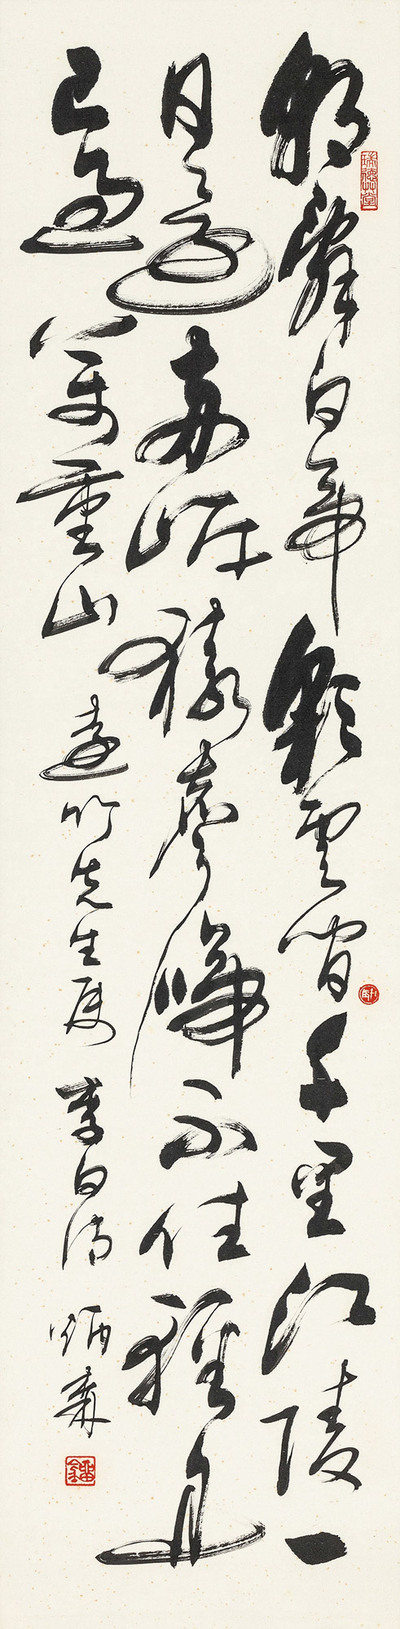 朝辭白帝彩雲間千里江陵一
日還兩岸猿聲啼不住輕舟
已過萬重山 竹先生屬 李白詩